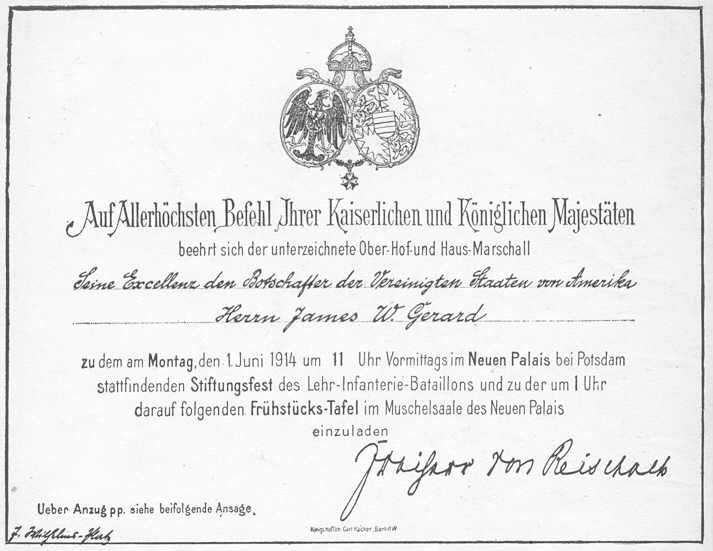 Auf Allerhöchsten Befehl Ihrer Kaiserlichen und Königlichen Majestäten
beehrt sich der unterzeichnete Ober-Hof-und Haus-Marschall
Seine Excellenz den Botschafter der Vereinigten Staaten von Amerika
Herrn James W. Gerard
zu dem am Montag, den 1. Juni 1914 um 11 Uhr Vormittags im Neuen Palais bei Potsdam
stattfindenden Stiftungsfest des Lehr-Infanterie-Bataillons und zu der um 1 Uhr
darauf folgenden Frühstücks-Tafel im Muschelsaale des Neuen Palais
einzuladen
Freiherr von Reischach
Ueber Anzug pp. siehe beifolgende Ansage.